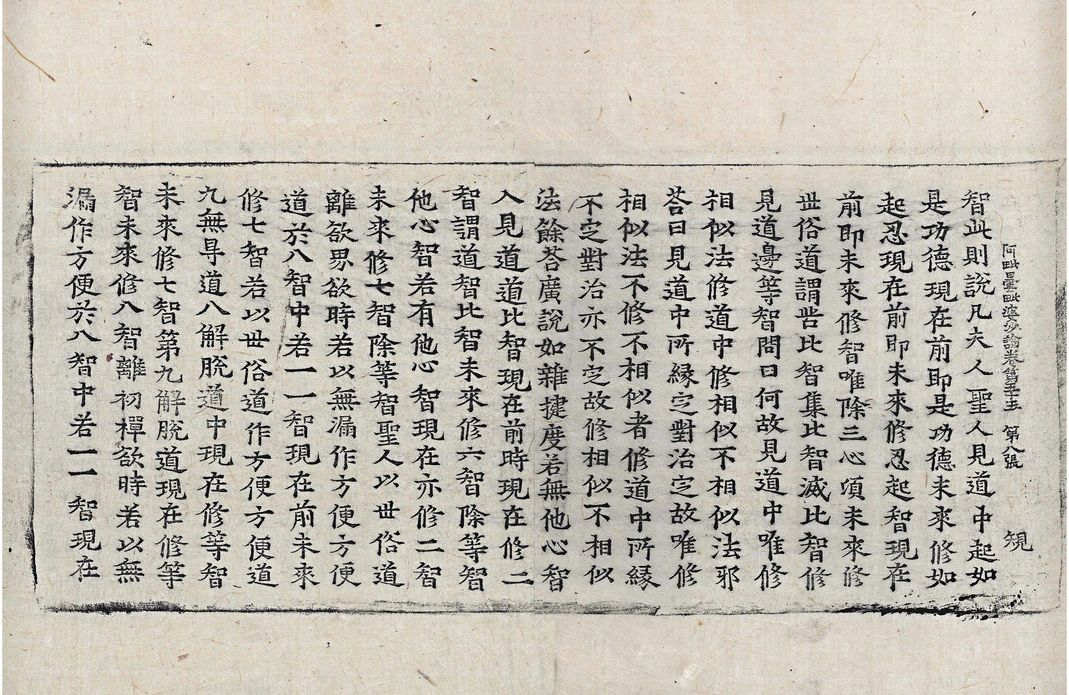 阿毗曇毗婆沙論卷第五十五 第八張 規
智此則說凡夫人聖人見道中起如
是功德現在前即是功德未來修如
起忍現在前即未來修忍起智現在
前即未來修智唯除三心頃未來修
世俗道謂苦比智集比智滅比智修
見道邊等智問曰何故見道中唯修
相似法修道中修相似不相似法耶
荅曰見道中所緣定對治定故唯修
相似法不修不相似者修道中所緣
不定對治亦不定故修相似不相似
法餘荅廣說如雜揵度若無他心智
入見道道比智現在前時現在修二
智謂道智比智未來修六智除等智
他心智若有他心智現在亦修二智
未來修七智除等智聖人以世俗道
離欲界欲時若以無漏作方便方便
道於八智中若一一智現在前未來
修七智若以世俗道作方便方便道
九無㝵道八解脫道中現在修等智
未來修七智第九解脫道現在修等
智未來修八智離初禪欲時若以無
漏作方便於八智中若一一智現在